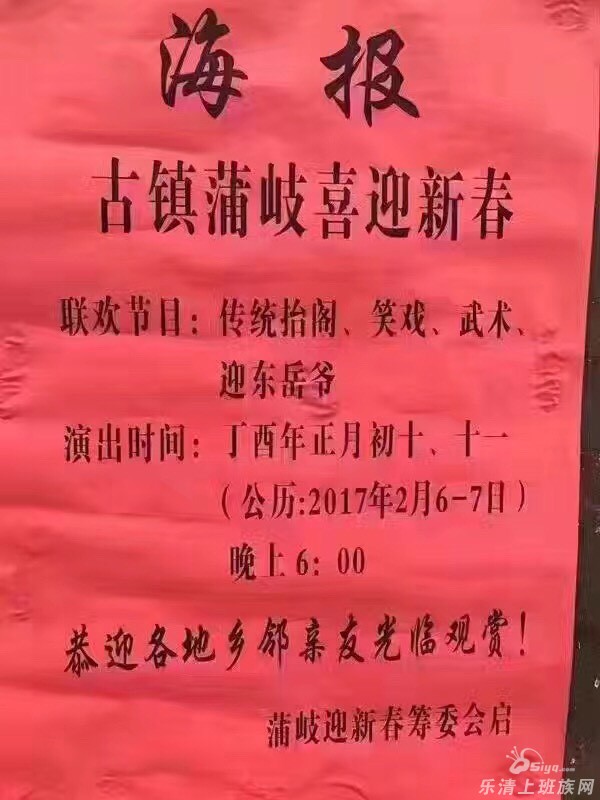 海 报
古镇蒲岐喜迎新春
联欢节目：传统抬阁、笑戏、武术、
迎东岳爷
演出时间：丁酉年正月初十、十一
（公历:2017年2月6-7日）
晚上 6：00
恭迎各地乡邻亲友光临观赏！
蒲岐迎新春筹委会启
Siyq.com
乐清上班族网